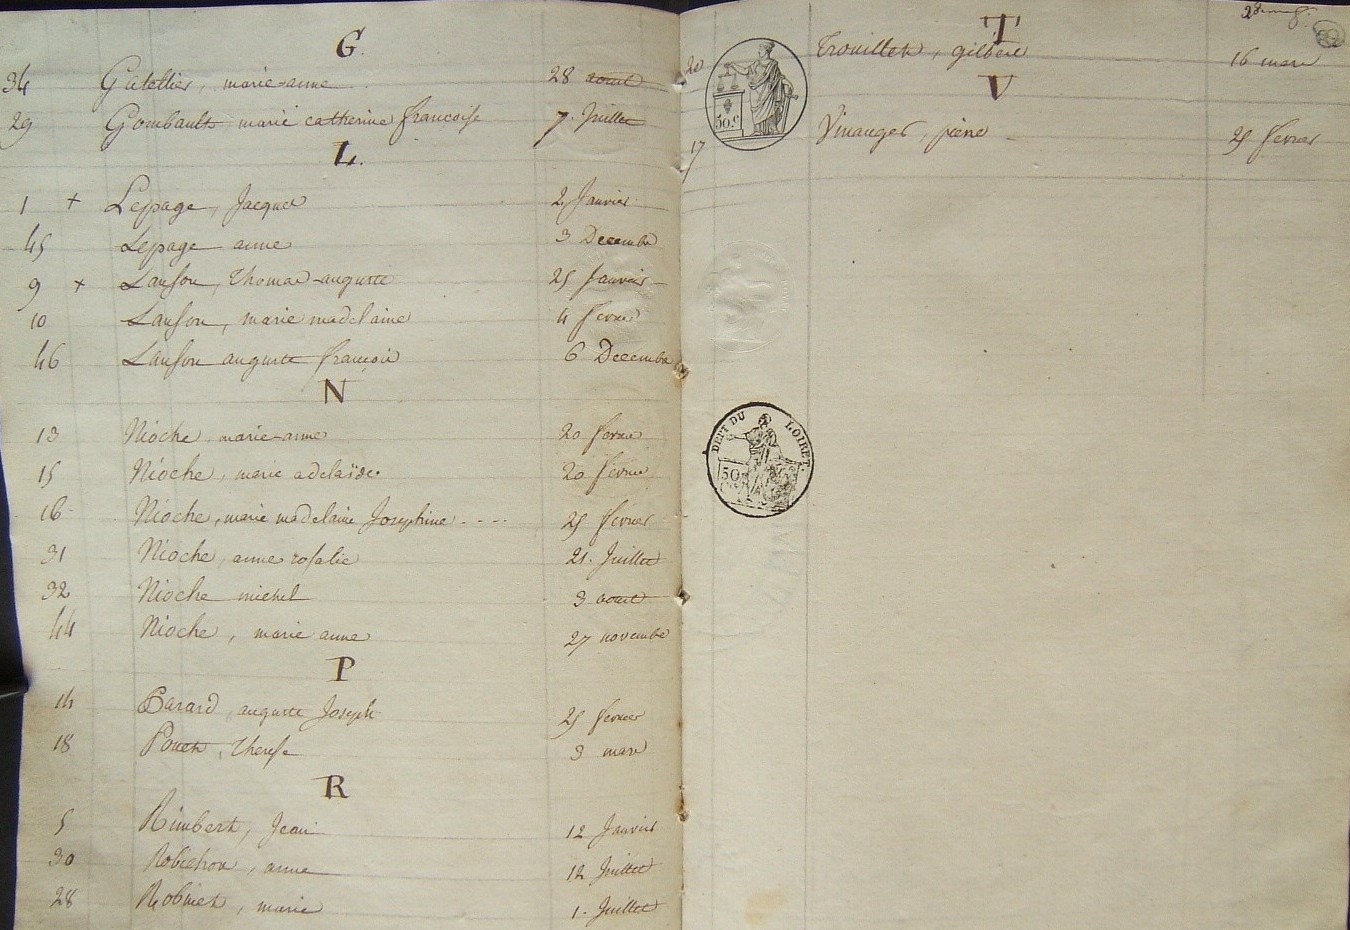 G.
34 Gatellier, marie-anne 28 aout
29 Gombault, marie catherine françoise 7. Juillet
L.
1 + Lepage, Jacques 2 Janvier
45 Lepage anne 3 Decembre
9 + Lanson, Thomas-auguste 25 Janvier
10 Lanson, marie madelaine 4 fevrier
46 Lanson auguste françois 6 Decembre
N
13 Nioche, marie-anne 20 fevrier
15 Nioche, marie adelaïde 20 fevrier
16 Nioche, marie madelaine Josephine ---- 25 fevrier
31 Nioche, anne rosalie 21. Juillet
32 Nioche michel 3 aout
44 Nioche, marie anne 27 novembre
P
14 Parard, auguste Joseph 25 fevrier
18 Therese 3 mars
R
5 Rimbert, Jean 12 Janvier
30 Robichon, anne 12 Juillet
28 Robinet, marie 1. Juillet
T
20 Trouillet, gilbert 16 mars
V
17 pierre 25 fevrier
50.c
DEPT DU LOIRET.
50